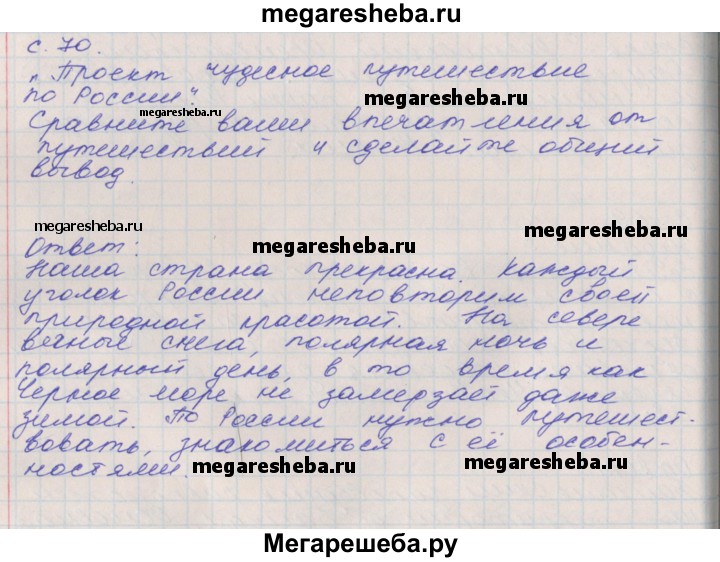 megaresheba.ru
с. 70.
„Проект чудесное путешествие
по России".
megaresheba.ru
megaresheba.ru
Сравните ваши впечатления от
путешествий и сделайте общий
вывод.
megaresheba.ru
megaresheba.ru
Ответ:
megaresheba.ru
Наша страна прекрасна. Каждый
уголок России неповторим своей
природной красотой. На севере
вечные снега, полярная ночь и
полярный день, в то время как
Черное море не замерзает даже
зимой. По России нужно путешест-
вовать, знакомиться с её особен-
ностями.
megaresheba.ru
megaresheba.ru
Мегарешеба.ру